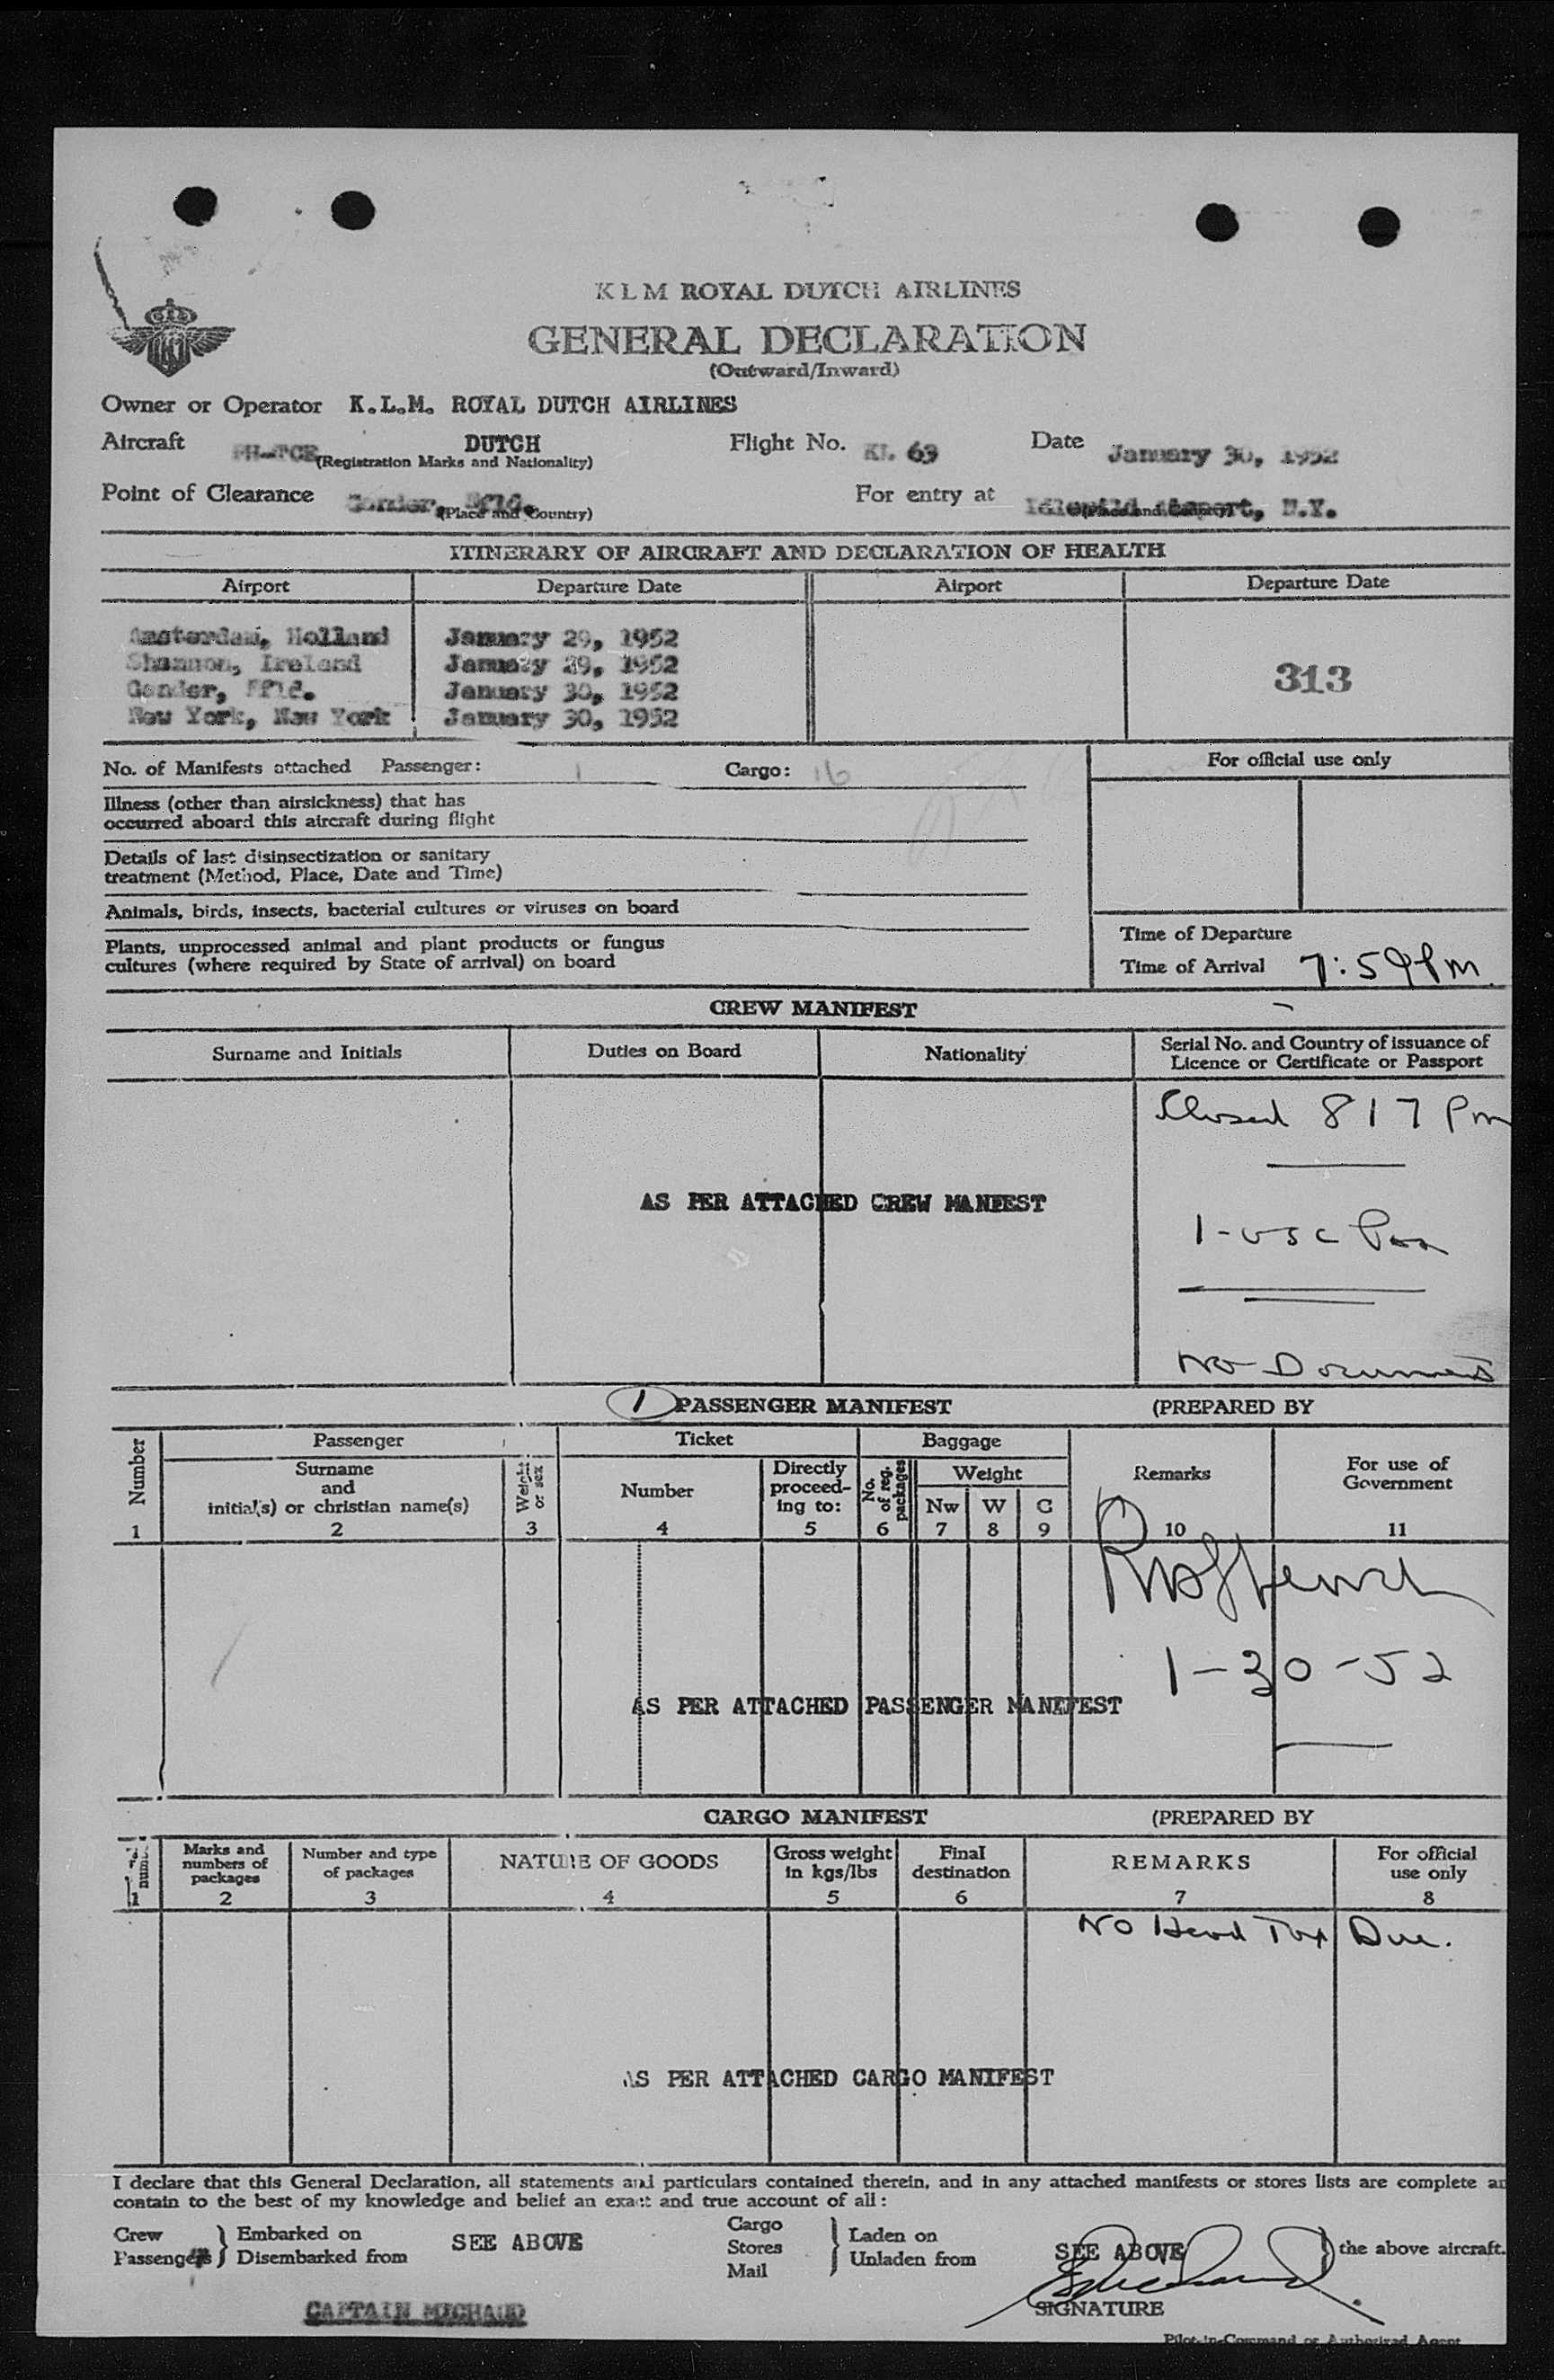 KLM ROYAL DUTCH AIRLINES
GENERAL DECLARATION
(Outward/Inward)
Owner or Operator K.L.M. ROYAL DUTCH AIRLINES
Aircraft DUTCH Flight No. KL 63 Date January 30, 1952
(Registration Marks and Nationality)
Point of Clearance Gander, Nfld. For entry at Idlewild Airport, N.Y.
(Place and Country)
ITINERARY OF AIRCRAFT AND DECLARATION OF HEALTH
Airport Departure Date Airport Departure Date
Amsterdam, Holland January 29, 1952
Shannon, Ireland January 29, 1952
Gander, Nfld. January 30, 1952
New York, New York January 30, 1952
313
No. of Manifests attached Passenger: 1 Cargo: 16
For official use only
Illness (other than airsickness) that has
occurred aboard this aircraft during flight
Details of last disinsectization or sanitary
treatment (Method, Place, Date and Time)
Animals, birds, insects, bacterial cultures or viruses on board
Plants, unprocessed animal and plant products or fungus
cultures (where required by State of arrival) on board
Time of Departure
Time of Arrival 7:59 Pm
CREW MANIFEST
Surname and Initials Duties on Board Nationality Serial No. and Country of issuance of
Licence or Certificate or Passport
Closed 817 Pm
AS PER ATTACHED CREW MANIFEST
1-USC
No Documents
1 PASSENGER MANIFEST (PREPARED BY
Number Passenger Ticket Baggage Remarks For use of
Government
Surname
and
initial(s) or christian name(s)
Weight
or sex
Number
Directly
proceed-
ing to:
No.
of reg.
packages
Weight
Nw W C
1 2 3 4 5 6 7 8 9 10 11
1-30-52
AS PER ATTACHED PASSENGER MANIFEST
CARGO MANIFEST (PREPARED BY
Marks and
numbers of
packages
Number and type
of packages
NATURE OF GOODS
Gross weight
in kgs/lbs
Final
destination
REMARKS
For official
use only
1 2 3 4 5 6 7 8
No Head Tax Due.
AS PER ATTACHED CARGO MANIFEST
I declare that this General Declaration, all statements and particulars contained therein, and in any attached manifests or stores lists are complete an
contain to the best of my knowledge and belief an exact and true account of all:
Crew
Passengers
Embarked on
Disembarked from
SEE ABOVE
Cargo
Stores
Mail
Laden on
Unladen from
SEE ABOVE
the above aircraft.
CAPTAIN MICHAUD
SIGNATURE
Pilot-in-Command or Authorized Agent